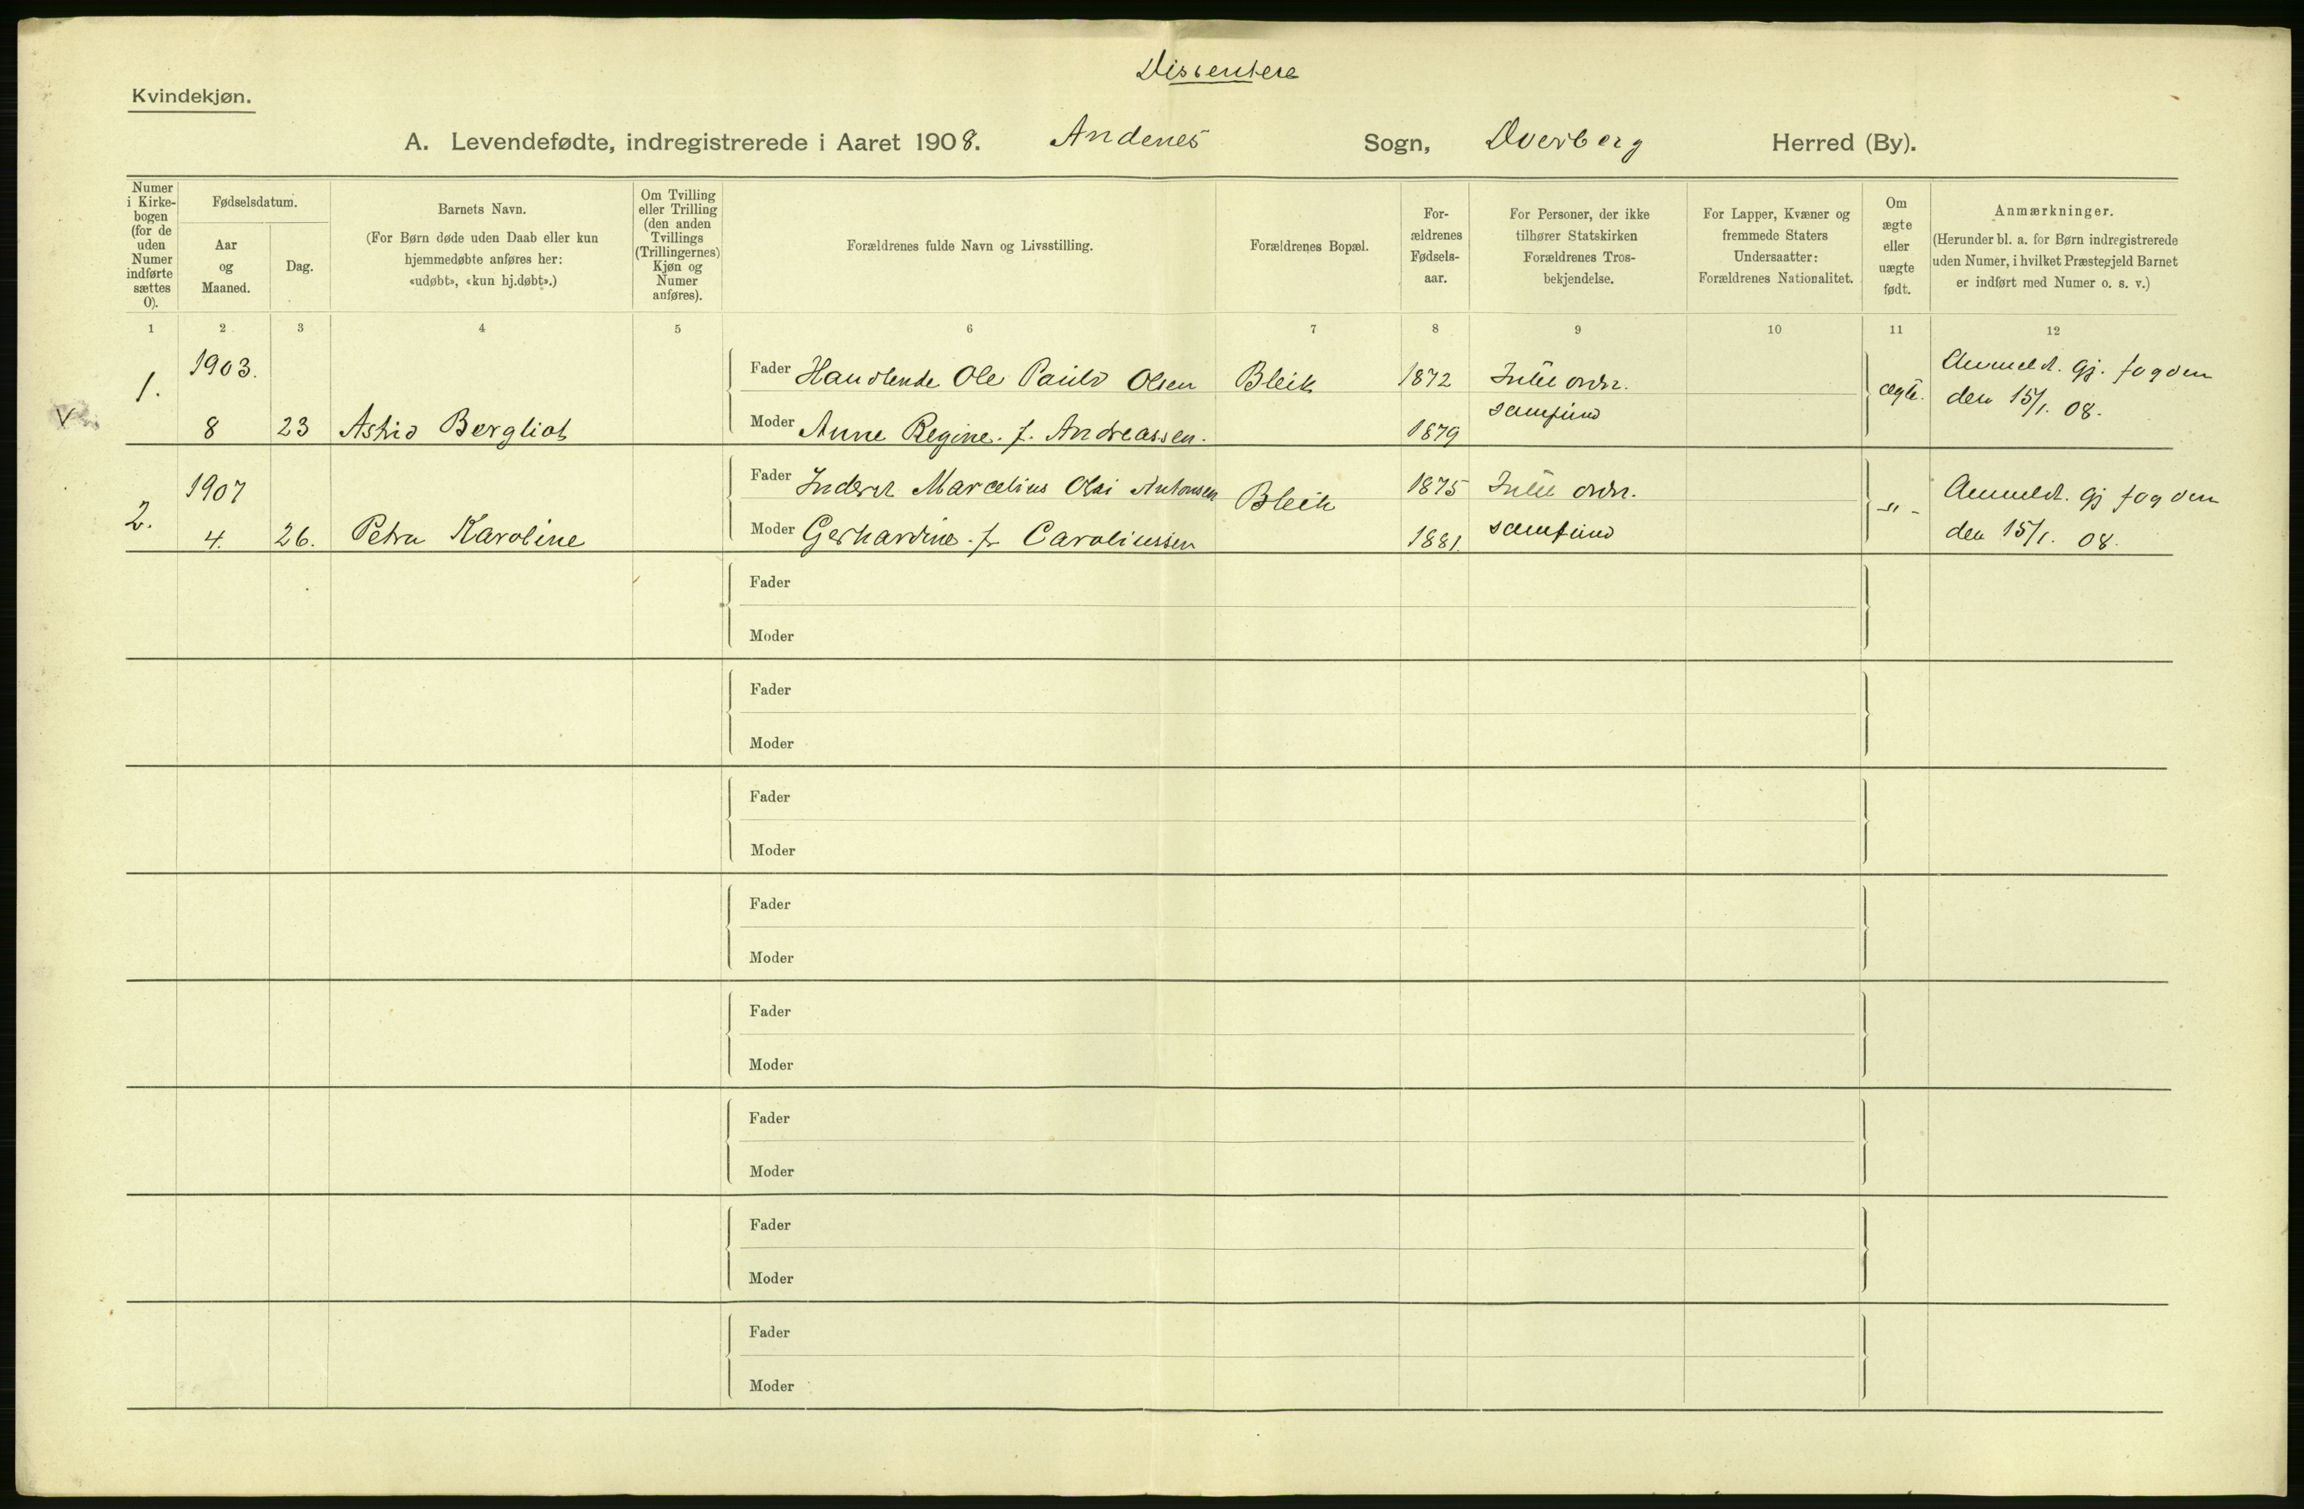 Dissentere
Kvindekjøn.
A. Levendefødte, indregistrerede i Aaret 1908. Andenes Sogn, Dverberg Herred (By).
Numer
i Kirke-
bogen
(for de
uden
Numer
indførte
sættes
0).
Fødselsdatum.
Aar
og
Maaned.
Dag.
Barnets Navn.
(For Børn døde uden Daab eller kun
hjemmedøbte anføres her:
«udøbt», «kun hj.døbt».)
Om Tvilling
eller Trilling
(den anden
Tvillings
(Trillingernes)
Kjøn og
Numer
anføres).
Forældrenes fulde Navn og Livsstilling.
Forældrenes Bopæl.
For-
ældrenes
Fødsels-
aar.
For Personer, der ikke
tilhører Statskirken
Forældrenes Tros-
bekjendelse.
For Lapper, Kvæner og
fremmede Staters
Undersaatter:
Forældrenes Nationalitet.
Om
ægte
eller
uægte
født.
Anmærkninger.
(Herunder bl. a. for Børn indregistrerede
uden Numer, i hvilket Præstegjeld Barnet
er indført med Numer o. s. v.)
1 2 3 4 5 6 7 8 9 10 11 12
V
1.
1903.
8 23 Astrid Bergliot
Fader Handlende Ole Paulo Olsen
Moder Anne Regine f. Andreassen.
Bleik
1872
1879
ordn.
samfund
ægte.
Anmeldt. gj. fogden
den 15/1. 08.
2.
1907
4. 26. Petra Karoline
Fader Inderst Marcelius Olai Antonsen
Moder Gerhardine f. Caroliussen
Bleik
1875
1881.
ordn.
samfund
-"-
Anmeldt. gj fogden
den 15/1. 08.
Fader
Moder
Fader
Moder
Fader
Moder
Fader
Moder
Fader
Moder
Fader
Moder
Fader
Moder
Fader
Moder